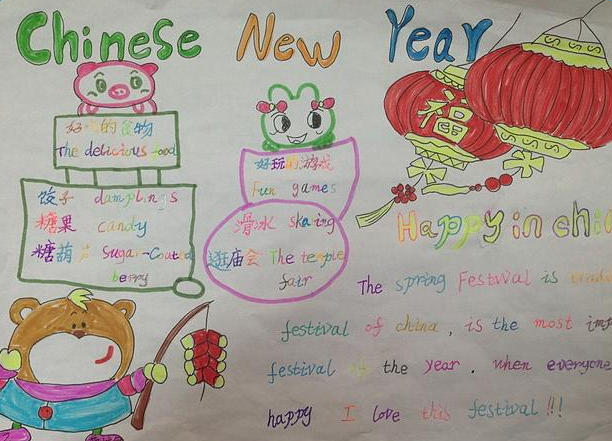 Chinese New Year
的食物
The delicious food
饺子 damplings
糖果 candy
糖葫 Sugar-Coated
berry
好玩的游戏
Fun games
滑冰 skating
逛庙会 The temple
fair
福
Happy in
The spring Festival is
festival of china, is the most
festival the year. when everyone
happy I love this festival!!!